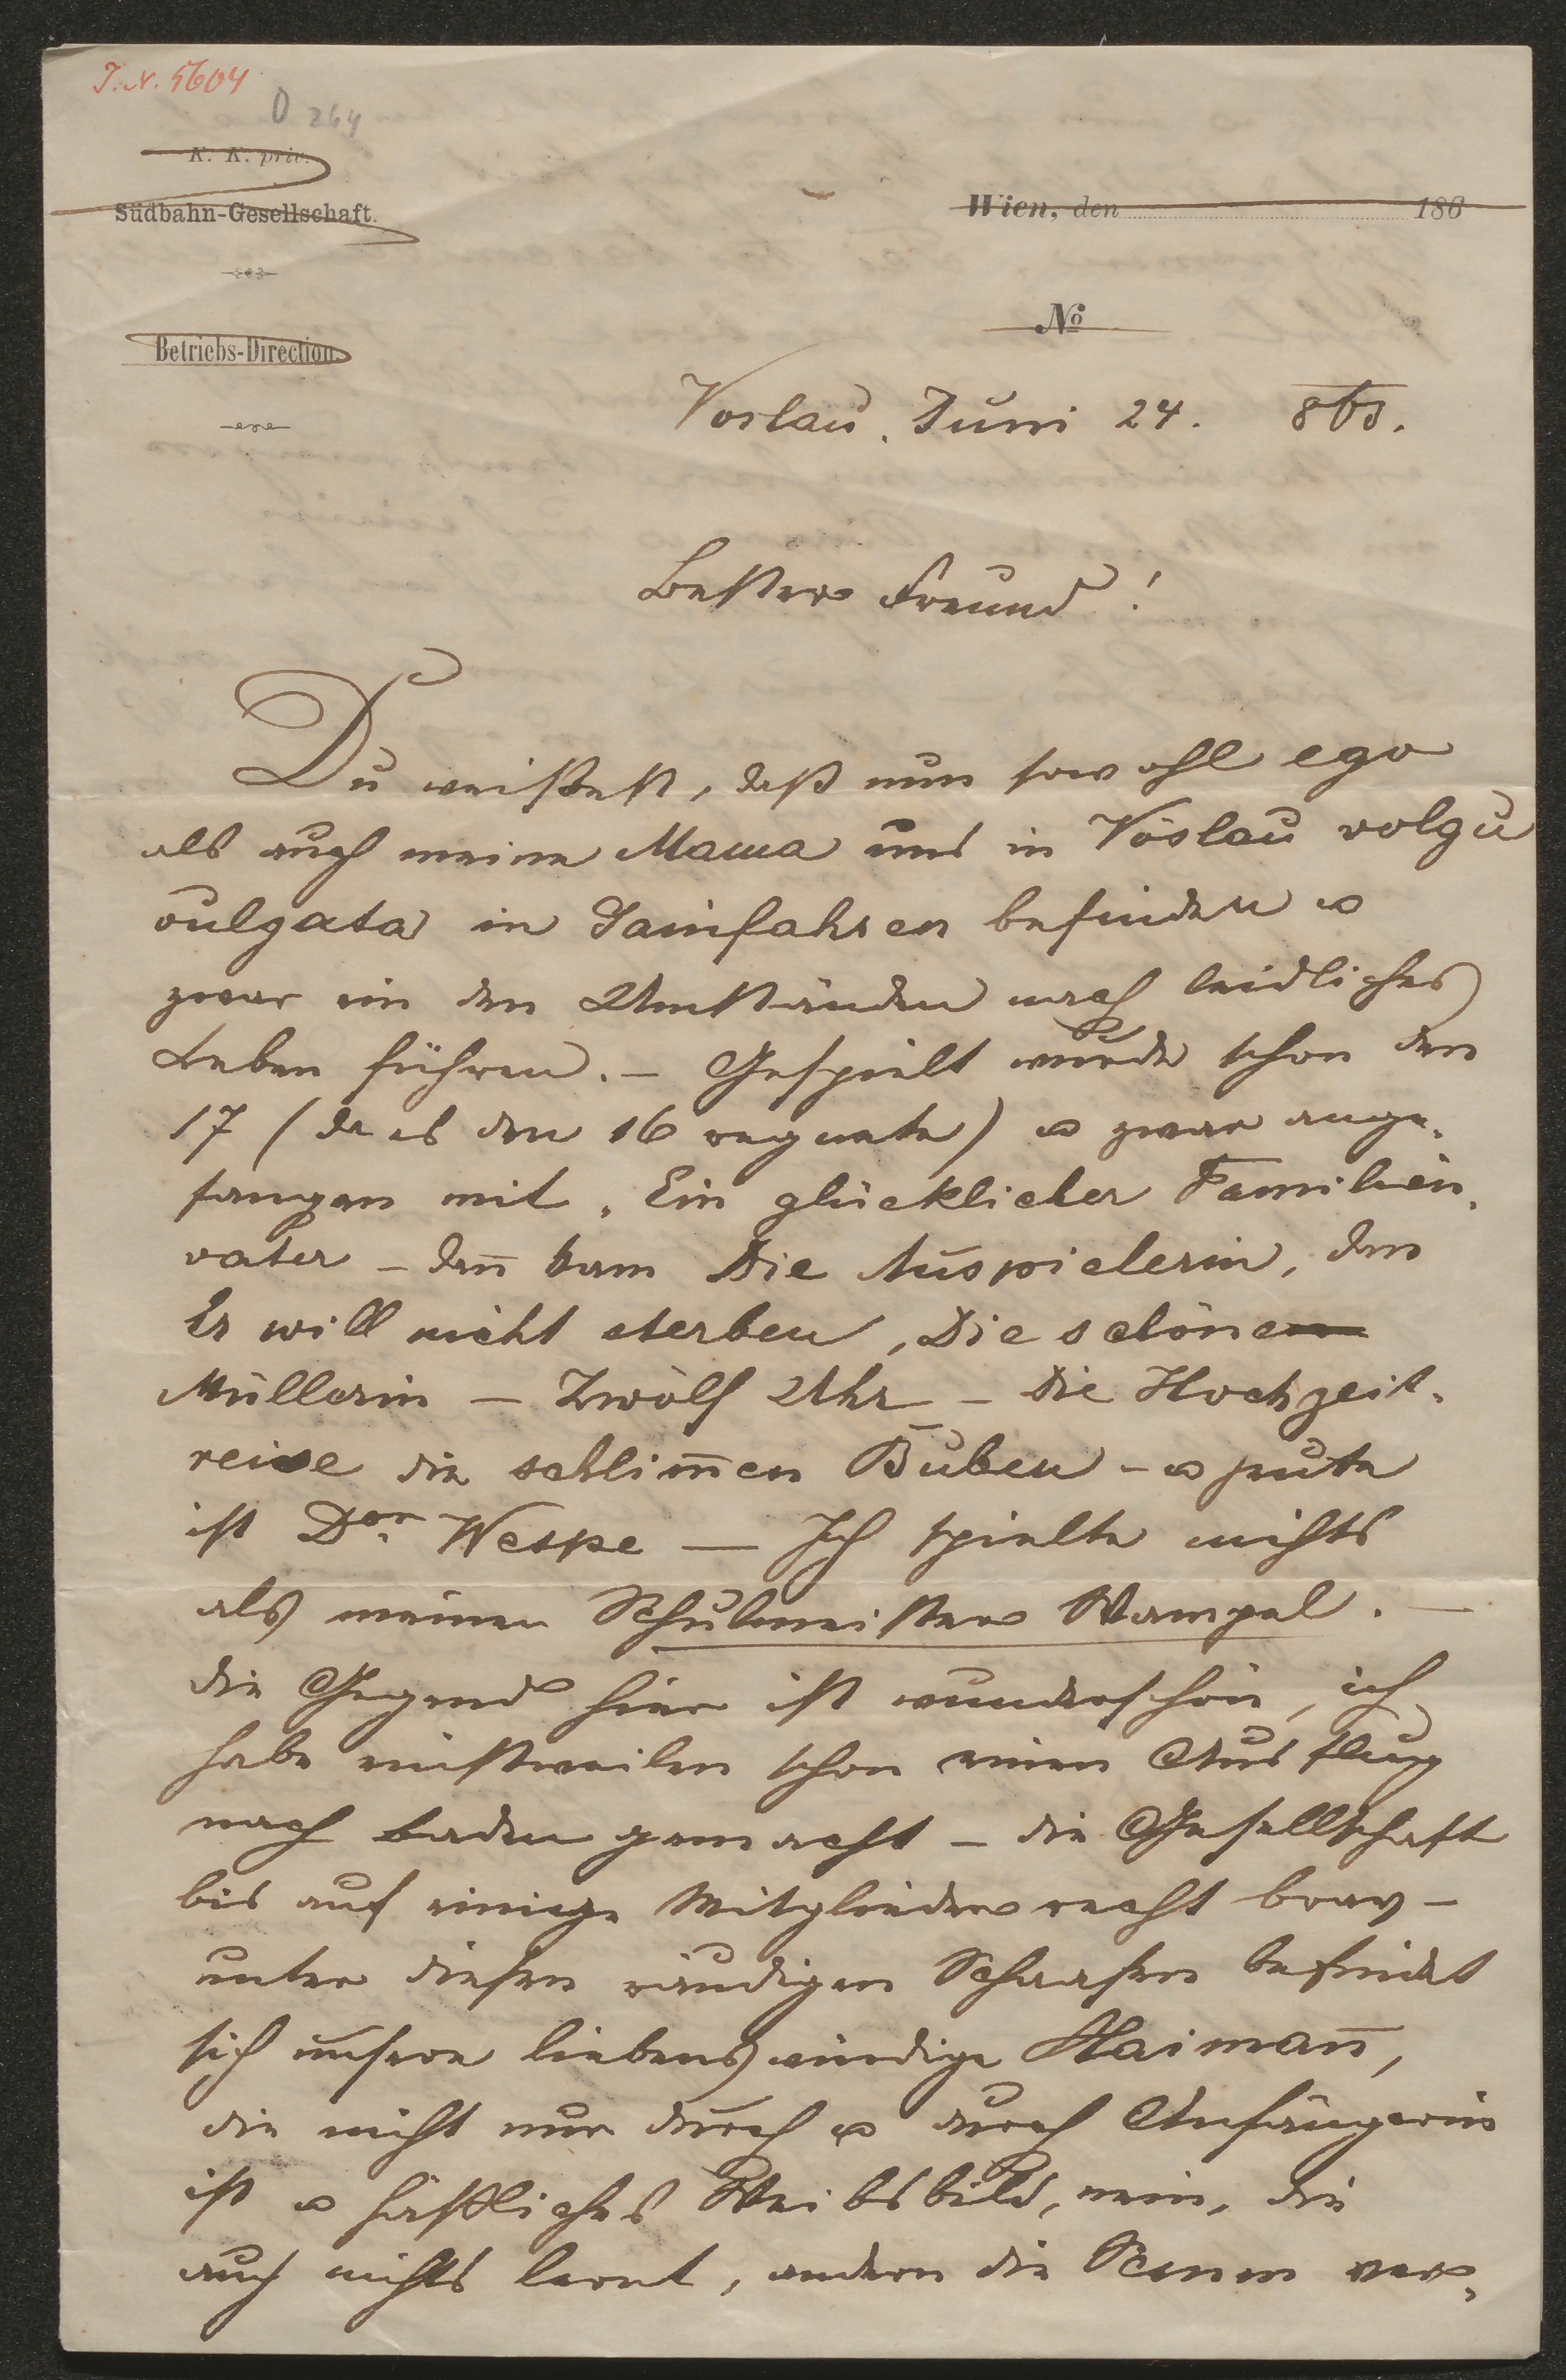 J. N. 5604
O 264
K. K. priv.
Südbahn-Gesellschaft.
Wien, den 186
No
Betriebs-Direction.
Vöslau. Juni 24. 865.
Bester Freund!
Du weißest, daß nun sowohl ego
als auch meine Mama uns in Vöslau volgu
vulgata in Gainfahren befinden u
zwar ein den Umständen nach leidliches
Leben führen. – Gespielt wurde schon den
17 (da es den 16 regnete) u zwar ange-
fangen mit „Ein glücklicher Familien-
vater – dañ kam Die Auspielerin, dan
Er will nicht sterben, Die schöne
Müllerin – Zwölf Uhr – Die Hochzeit-
reise die schlim̄en Buben – u heute
ist Dor. Wespe — Ich spielte nichts
als meinen Schulmeister Wampel. —
die Gegend hier ist wunderschön, ich
habe einstweilen schon einen Ausflug
nach Baden gemacht – die Gesellschaft
bis auf einige Mitglieder recht brav –
unter diesen räudigen Schaafen befindet
sich unsere liebenswürdige Haimañ,
die nicht nur durch u durch Anfängerin
ist u häßliches Weibsbild, nein, die
auch nichts lernt, andern die Scenen ver-